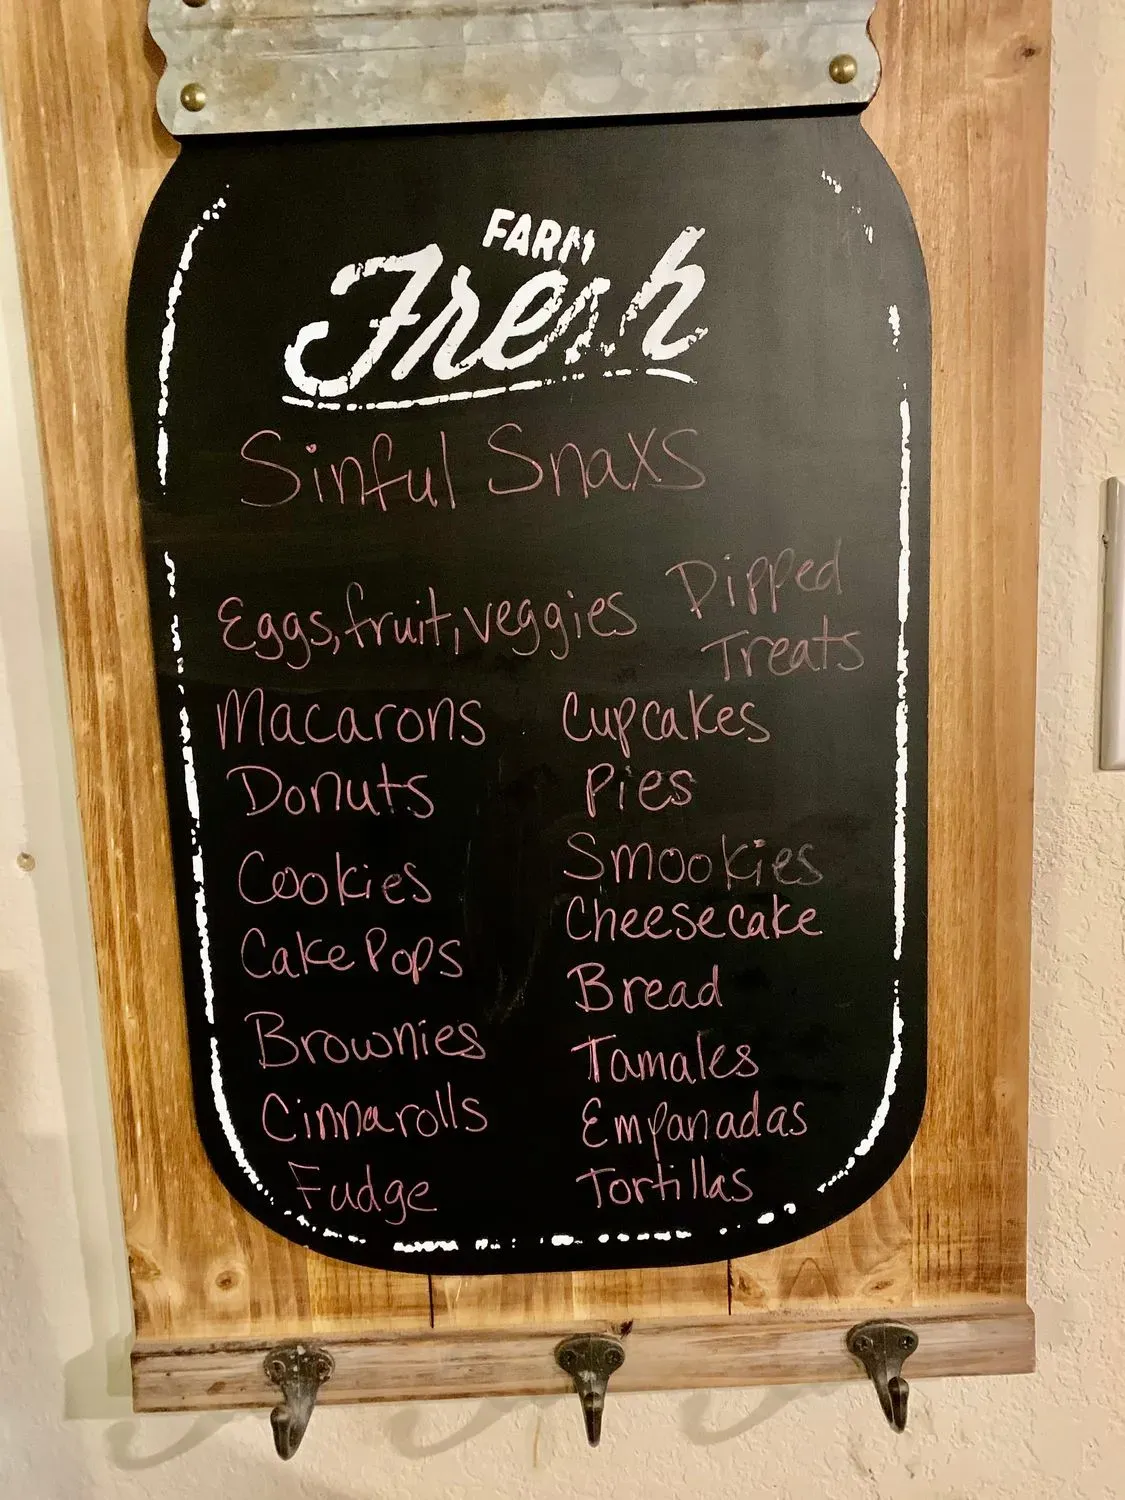 FARM
Fresh
Sinful Snaxs
Eggs, fruit, veggies
Dipped
Treats
Macarons
Donuts
Cookies
Cake Pops
Brownies
Cinnarolls
Fudge
Cupcakes
Pies
Smookies
Cheesecake
Bread
Tamales
Empanadas
Tortillas